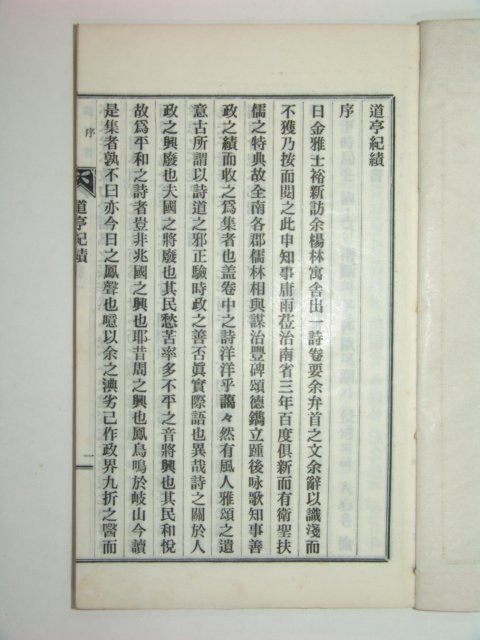 道亭紀績
序
日金雅士裕新訪余楊林寓舍出一詩卷要余弁首之文余辭以識淺而
不獲乃按而閱之此申知事庸雨莅治南省三年百度俱新而有衛聖扶
儒之特典故全南各郡儒林相與謀治豐碑頌德鐫立踵後咏歌知事善
政之績而收之爲集者也盖卷中之詩洋洋乎藹々然有風人雅頌之遺
意古所謂以詩道之邪正驗時政之善否眞實際語也異哉詩之關於人
政之興廢也夫國之將廢也其民愁苦率多不平之音將興也其民和悅
故爲平和之詩者豈非兆國之興也耶昔周之興也鳳鳥鳴於岐山今讀
是集者孰不曰亦今日之鳳聲也噫以余之淟劣己作政界九折之醫而
序
道亭紀績
一